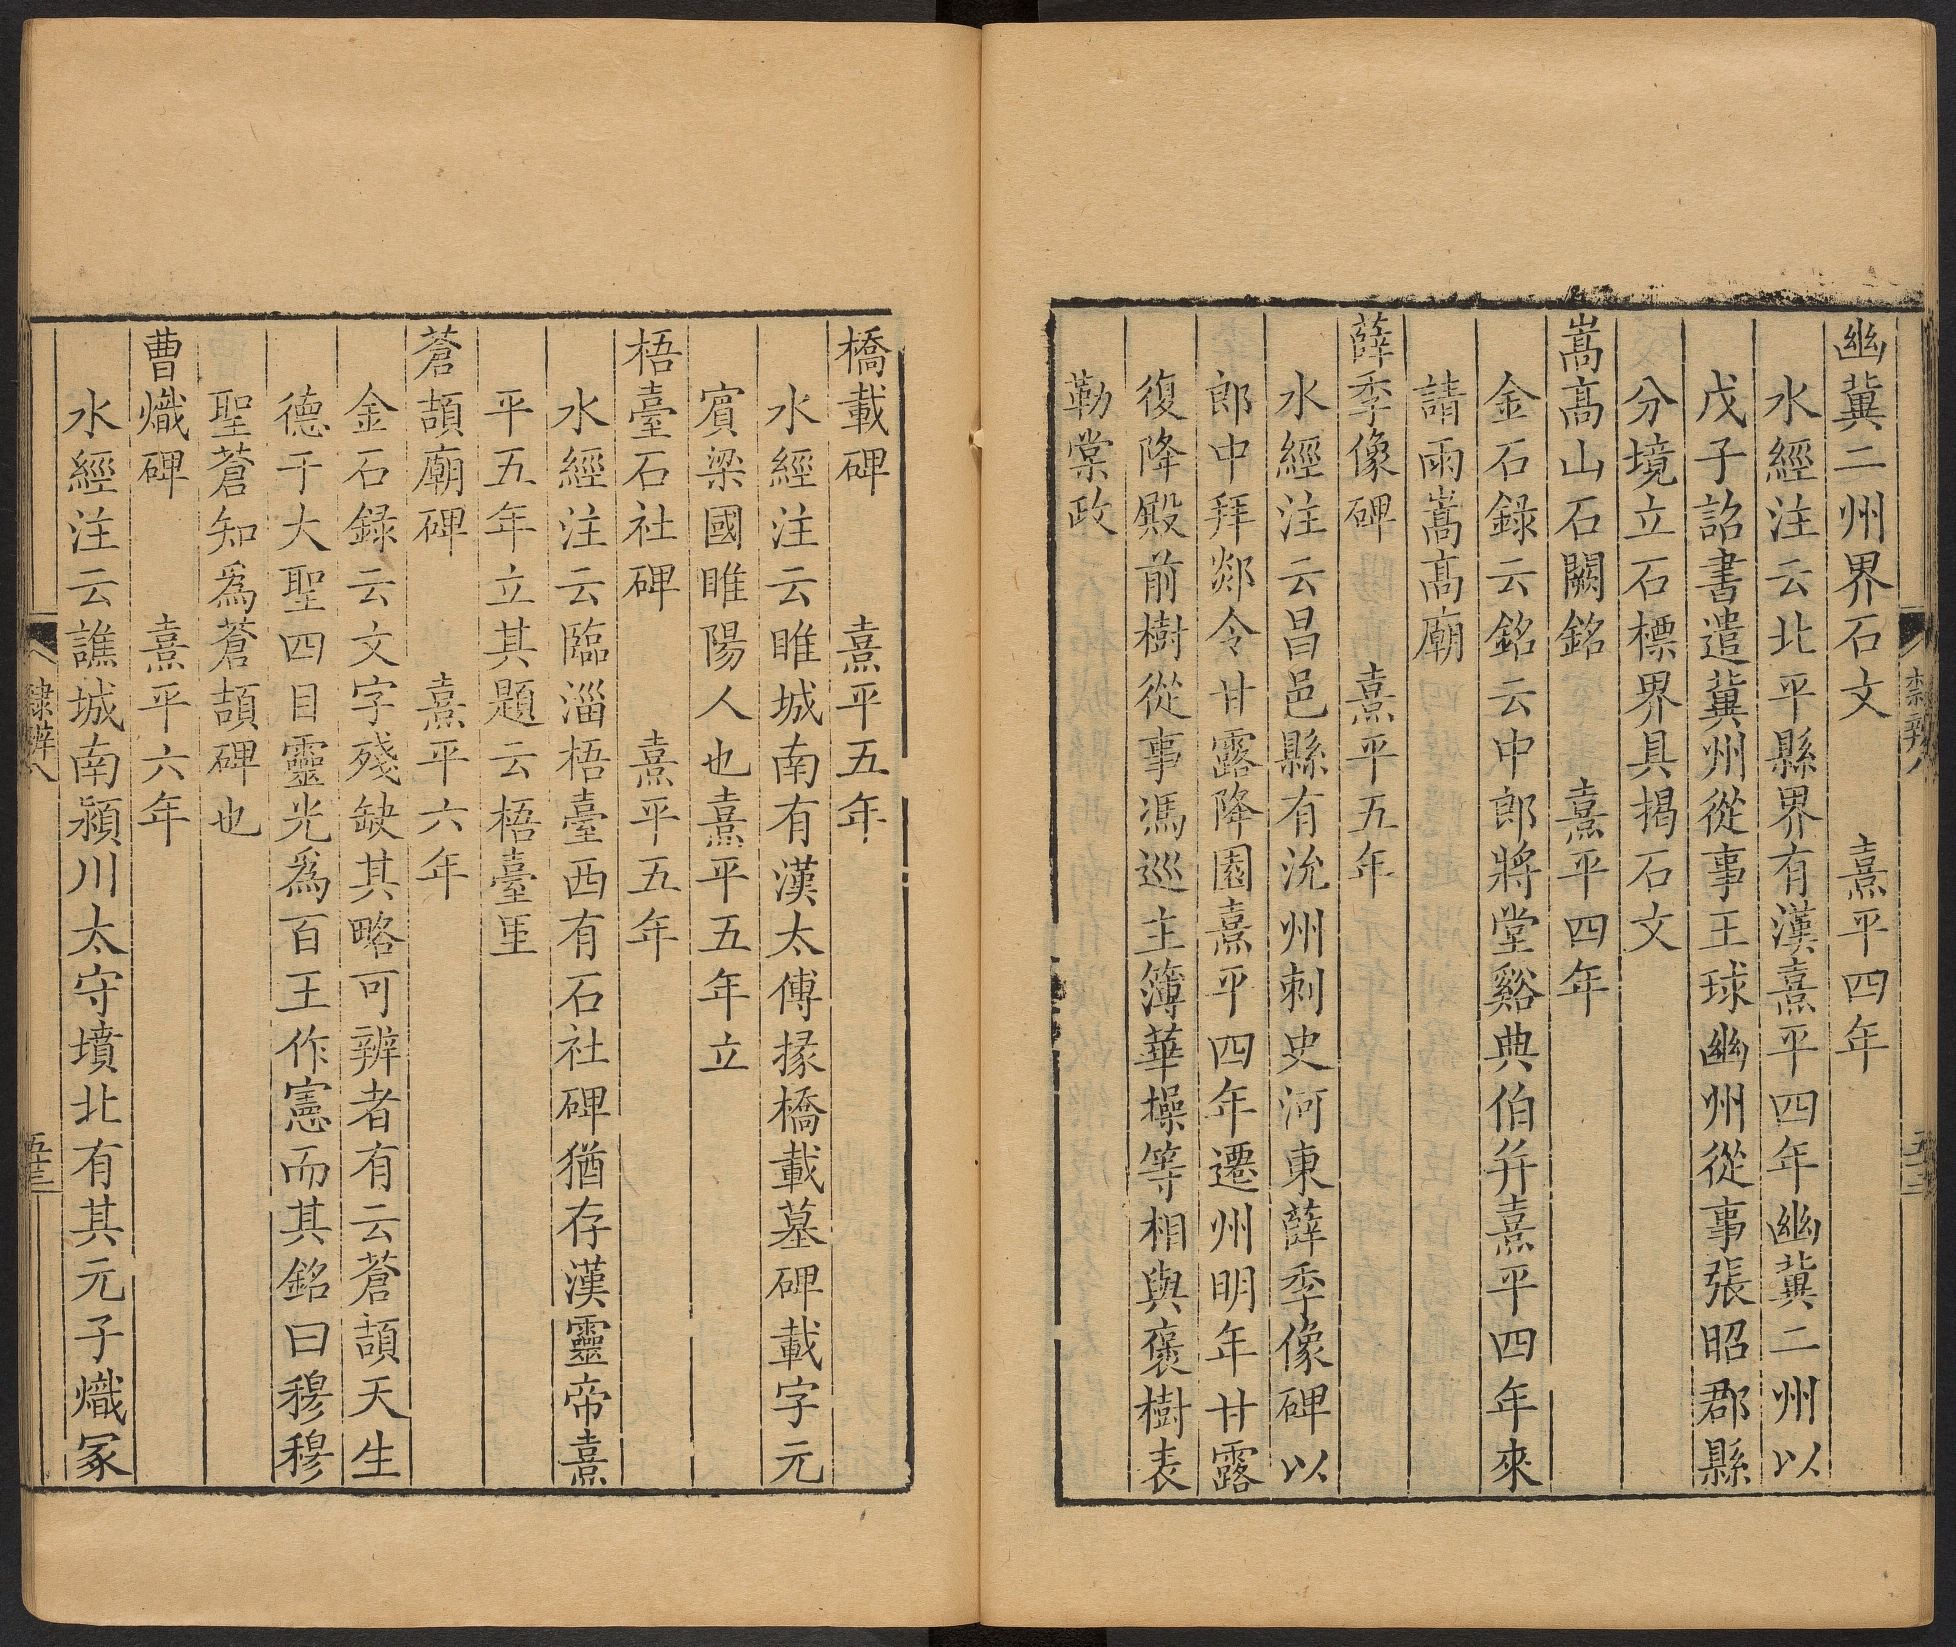 幽冀二州界石文　熹平四年
水經注云北平縣界有漢熹平四年幽冀二州以
戊子詔書遣冀州從事王球幽州從事張昭郡縣
分境立石標界具揭石文
嵩高山石闕銘　熹平四年
金石録云銘云中郎將堂谿典伯并熹平四年來
請雨嵩高廟
薛季像碑　熹平五年
水經注云昌邑縣有沇州刺史河東薛季像碑以
郎中拜郯令甘露降園熹平四年遷州明年甘露
復降殿前樹從事馮巡主簿華操等相與褒樹表
勒棠政
橋載碑　熹平五年
水經注云睢城南有漢太傅掾橋載墓碑載字元
賓梁國睢陽人也熹平五年立
梧臺石社碑　熹平五年
水經注云臨淄梧臺西有石社碑猶存漢靈帝熹
平五年立其題云梧臺里
蒼頡廟碑　熹平六年
金石録云文字殘缺其略可辨者有云蒼頡天生
德于大聖四目靈光爲百王作憲而其銘曰穆穆
聖蒼知爲蒼頡碑也
曹熾碑　熹平六年
水經注云譙城南潁川太守墳北有其元子熾冢
隸辨八